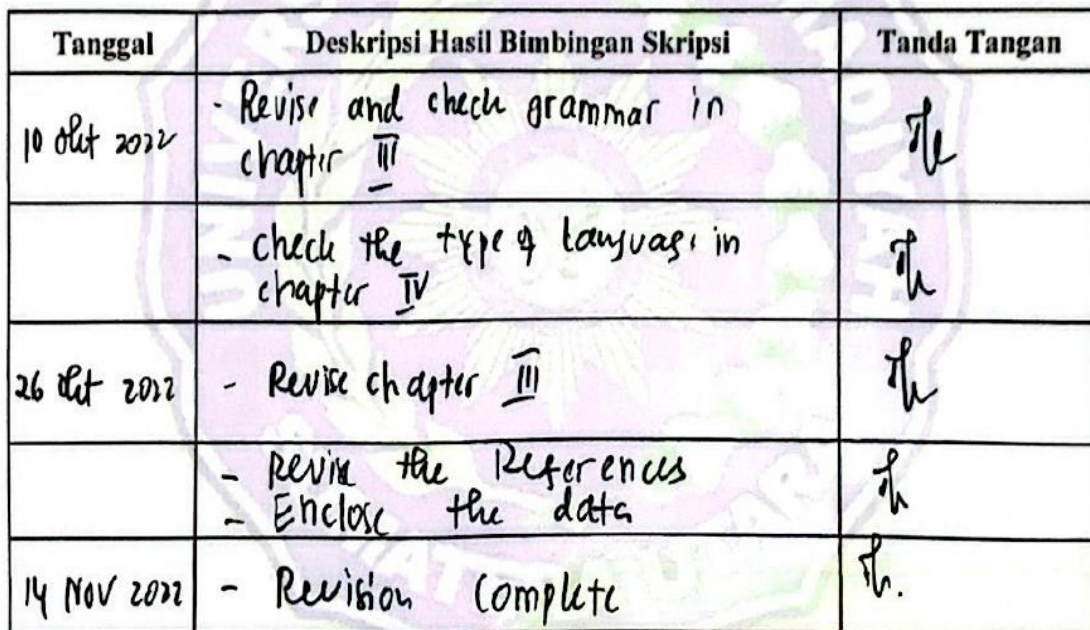 Tanggal Deskripsi Hasil Bimbingan Skripsi Tanda Tangan
10 Okt 2022 - Revise and check grammar in
chapter III
- check the type of language in
chapter IV
26 Okt 2022 - Revise chapter III
- Revise the References
- Enclose the data
14 Nov 2022 - Revision Complete